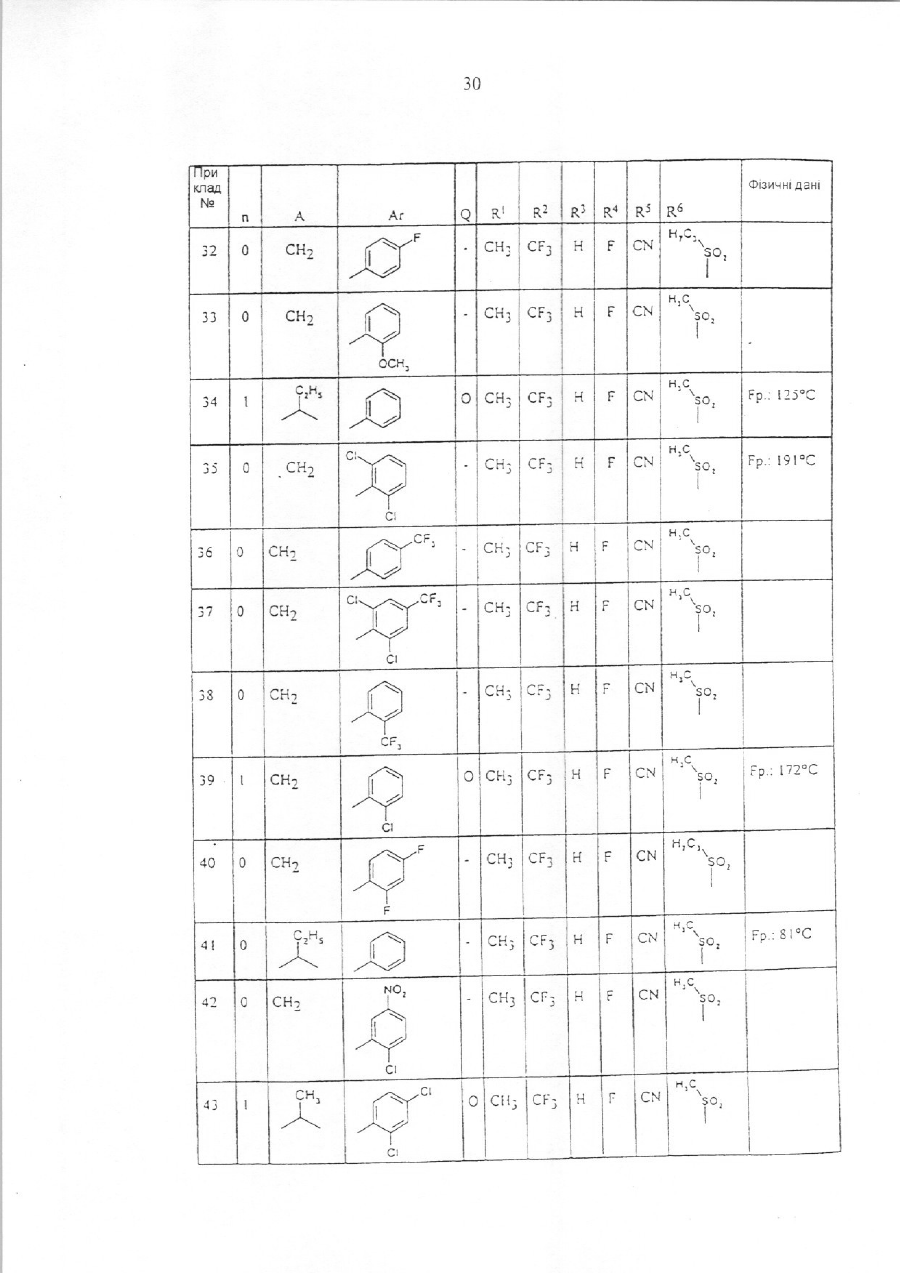 30
При клад № n A Ar Q R¹ R² R³ R⁴ R⁵ R⁶ Фізичні дані
32 0 CH₂ F - CH₃ CF₃ H F CN SO₂
33 0 CH₂ OCH₃ - CH₃ CF₃ H F CN H₃C SO₂
34 1 C₂H₅ O CH₃ CF₃ H F CN H₃C SO₂ Fp.: 125°C
35 0 CH₂ Cl Cl - CH₃ CF₃ H F CN H₃C SO₂ Fp.: 191°C
36 0 CH₂ CF₃ - CH₃ CF₃ H F CN H₃C SO₂
37 0 CH₂ Cl CF₃ Cl - CH₃ CF₃ H F CN H₃C SO₂
38 0 CH₂ CF₃ - CH₃ CF₃ H F CN H₃C SO₂
39 1 CH₂ Cl O CH₃ CF₃ H F CN H₃C SO₂ Fp.: 172°C
40 0 CH₂ F F - CH₃ CF₃ H F CN SO₂
41 0 C₂H₅ - CH₃ CF₃ H F CN H₃C SO₂ Fp.: 81°C
42 0 CH₂ NO₂ Cl - CH₃ CF₃ H F CN H₃C SO₂
43 1 CH₃ Cl Cl O CH₃ CF₃ H F CN H₃C SO₂